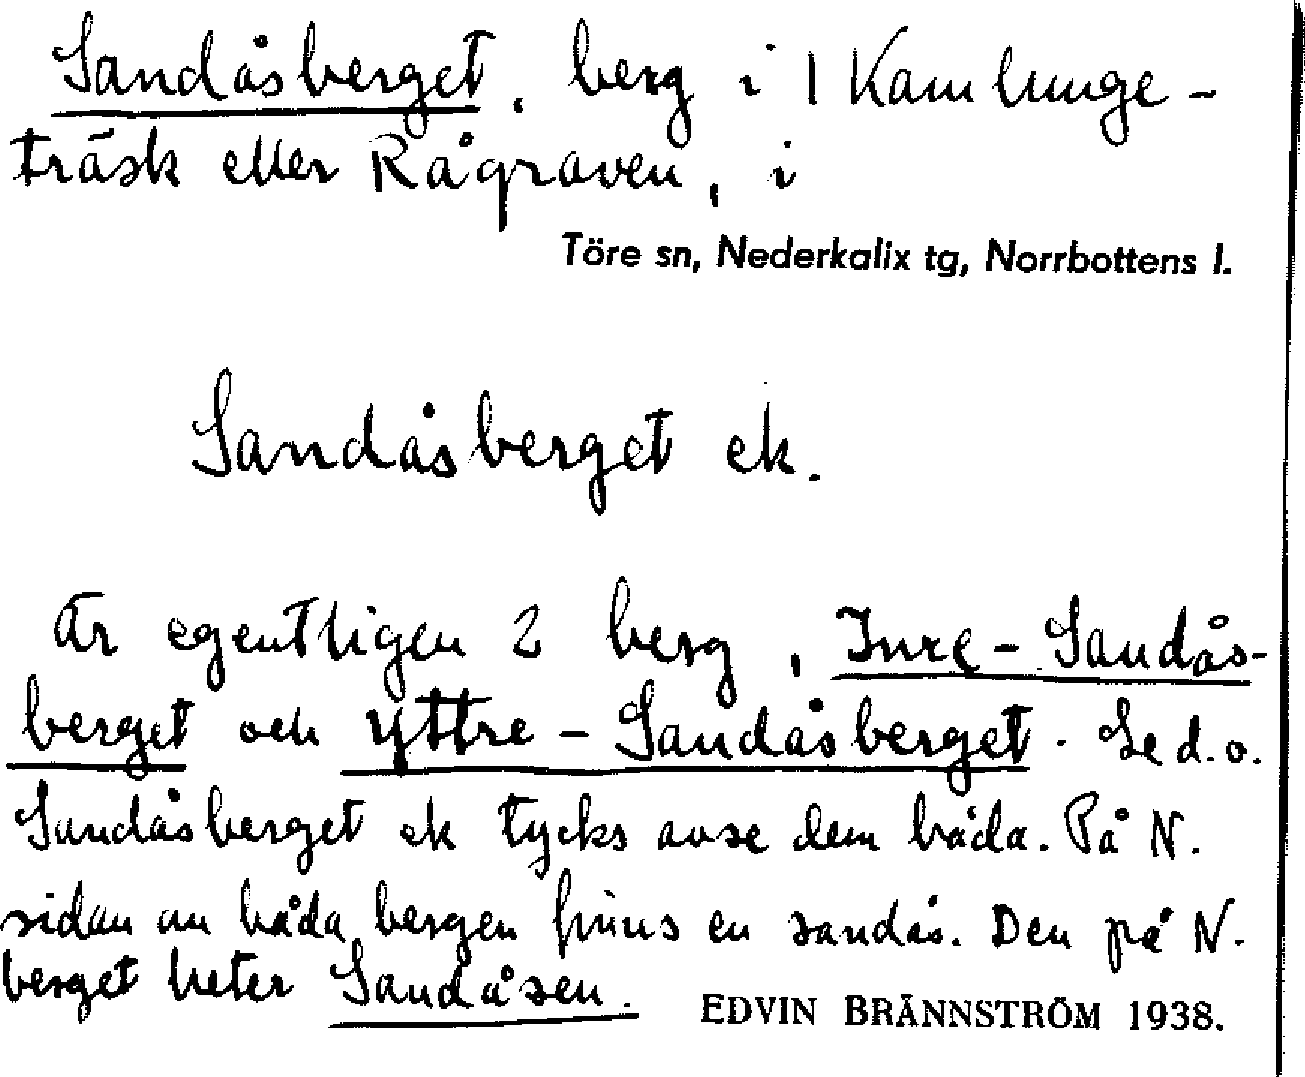 Sandåsberget, berg i 1 Kamlunge-
träsk eller Rågraven, i
Töre sn, Nederkalix tg, Norrbottens l.
Sandåsberget ek.
Är egentligen 2 berg, Inre-Sandås-
berget och Yttre-Sandåsberget. Se d.o.
Sandåsberget ek tycks avse dem båda. På N.
sidan av båda bergen finns en sandås. Den på N.
berget heter Sandåsen.
EDVIN BRÄNNSTRÖM 1938.